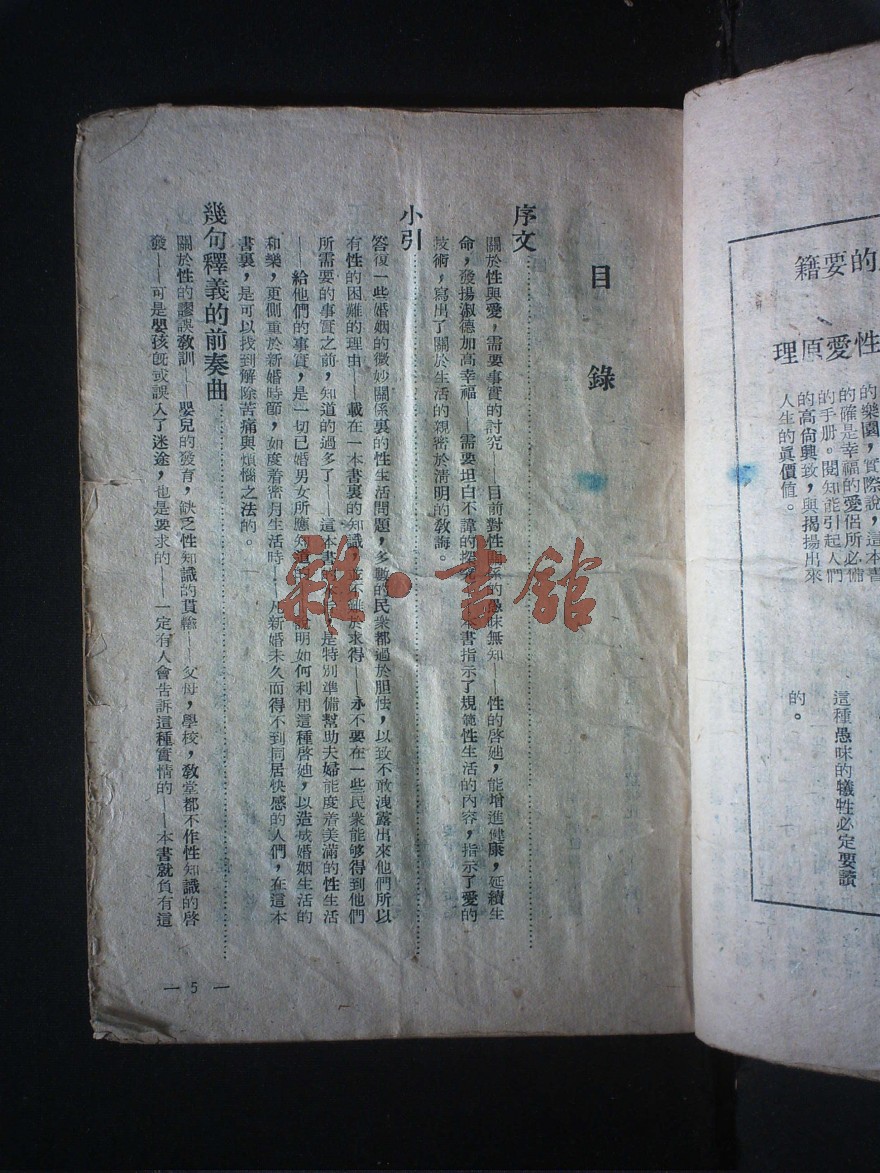 的要籍
性愛原理
的樂園，實際說，這本書
的確是幸福的愛侶所必備
的手册。閱知能引起人們
的高尚興致，與揭揚出來
人生的眞價值。
這種愚昧的犧牲必定要讀
的。
目錄
序文
關於性與愛，需要事實的討究——目前對性關係的愚昧無知——性的啓廸，能增進健康，延續生
命，發揚淑德加高幸福——需要坦白不諱的探究本書指示了規範性生活的內容，指示了愛的
技術，寫出了關於生活的親密於淸明的敎誨。
小引
答復一些婚姻的微妙關係裏的性生活問題，多數的民衆都過於胆怯，以致不敢洩露出來他們所以
有性的困難的理由——載在一本書裏的知識，並不難於求得——永不要在一些民衆能够得到他們
所需要的事實之前，知道的過多了——這本書是特別準備幫助夫婦能度着美滿的性生活
——給他們的事實，是一切已婚男女所應知道的說明如何利用這種啓廸，以造成婚姻生活的
和樂，更側重於新婚時節，如度着密月生活時——凡新婚未久而得不到同居快感的人們，在這本
書裏，是可以找到解除苦痛與煩惱之法的。
幾句釋義的前奏曲
關於性的謬誤敎訓——嬰兒的發育，缺乏性知識的貫輸——父母，學校，敎堂都不作性知識的啓
發——可是嬰孩旣或誤入了迷途，也是要求的——一定有人會告訴這種實情的——本書就負有這
— 5 —
雜·書館